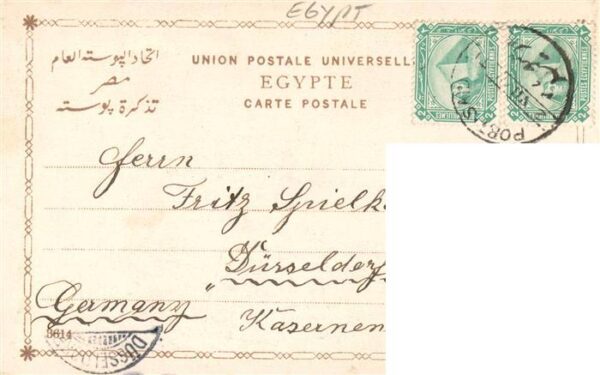 EGYPT
اتحاد البوسته العام
مصر
تذكرة بوسته
UNION POSTALE UNIVERSELL
EGYPTE
CARTE POSTALE
PORT SA
Herrn
Fritz Spielk
Düsseldorf
Germany
Kasernen
3614
DÜSSELD